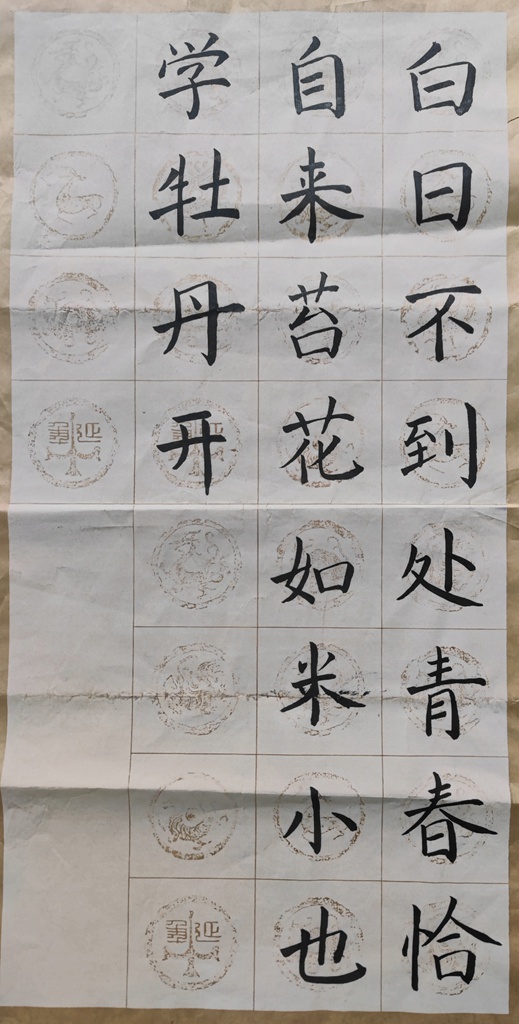 白日不到处青春恰
自来苔花如米小也
学牡丹开